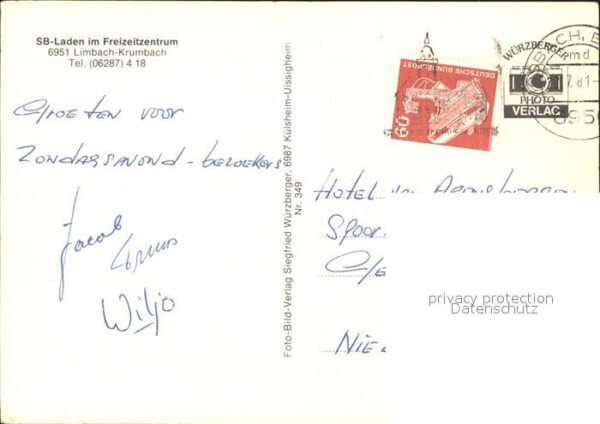 SB-Laden im Freizeitzentrum
6951 Limbach-Krumbach
Tel. (06287) 4 18
Groeten voor
Zondagsavond-bezoekers
Jacob
Wiljo
Foto-Bild-Verlag Siegfried Würzberger, 6987 Külsheim-Uissigheim
Nr. 349
DEUTSCHE BUNDESPOST
WÜRZBERGER
PHOTO
VERLAG
Hotel
Spoor
Nie
privacy protection
Datenschutz